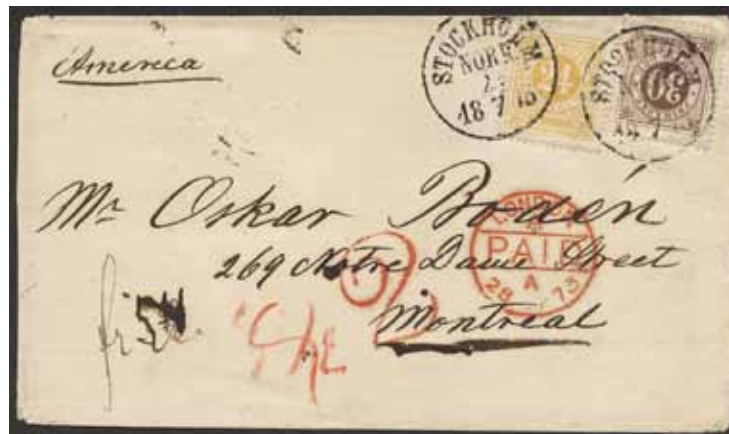 America
STOCKHOLM
NORR
18 7
24
STOCKHOLM
30
Mr Oskar Bodén
269 Notre Dame Street
Montreal
LONDON
PAID
A
28 73